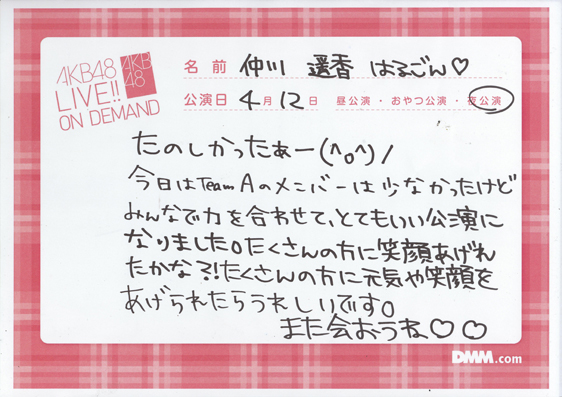 AKB48
LIVE!!
ON DEMAND
AKB
48
名前 仲川 遥香 はるごん♡
公演日 4月12日 昼公演・おやつ公演・夜公演
たのしかったぁー(^o^)/
今日はTeamAのメンバーは少なかったけど
みんなで力を合わせて、とてもいい公演に
なりました。たくさんの方に笑顔あげれ
たかな?!たくさんの方に元気や笑顔を
あげられたらうれしいです。
また会おうね♡♡
DMM.com